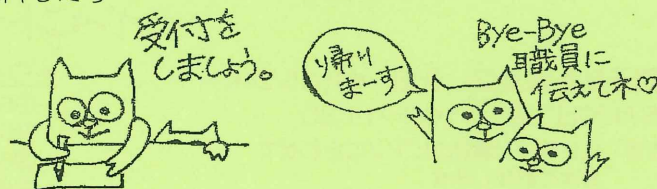 受付を
しましょう。
帰り
まーす
Bye-Bye
職員に
伝えてネ♡